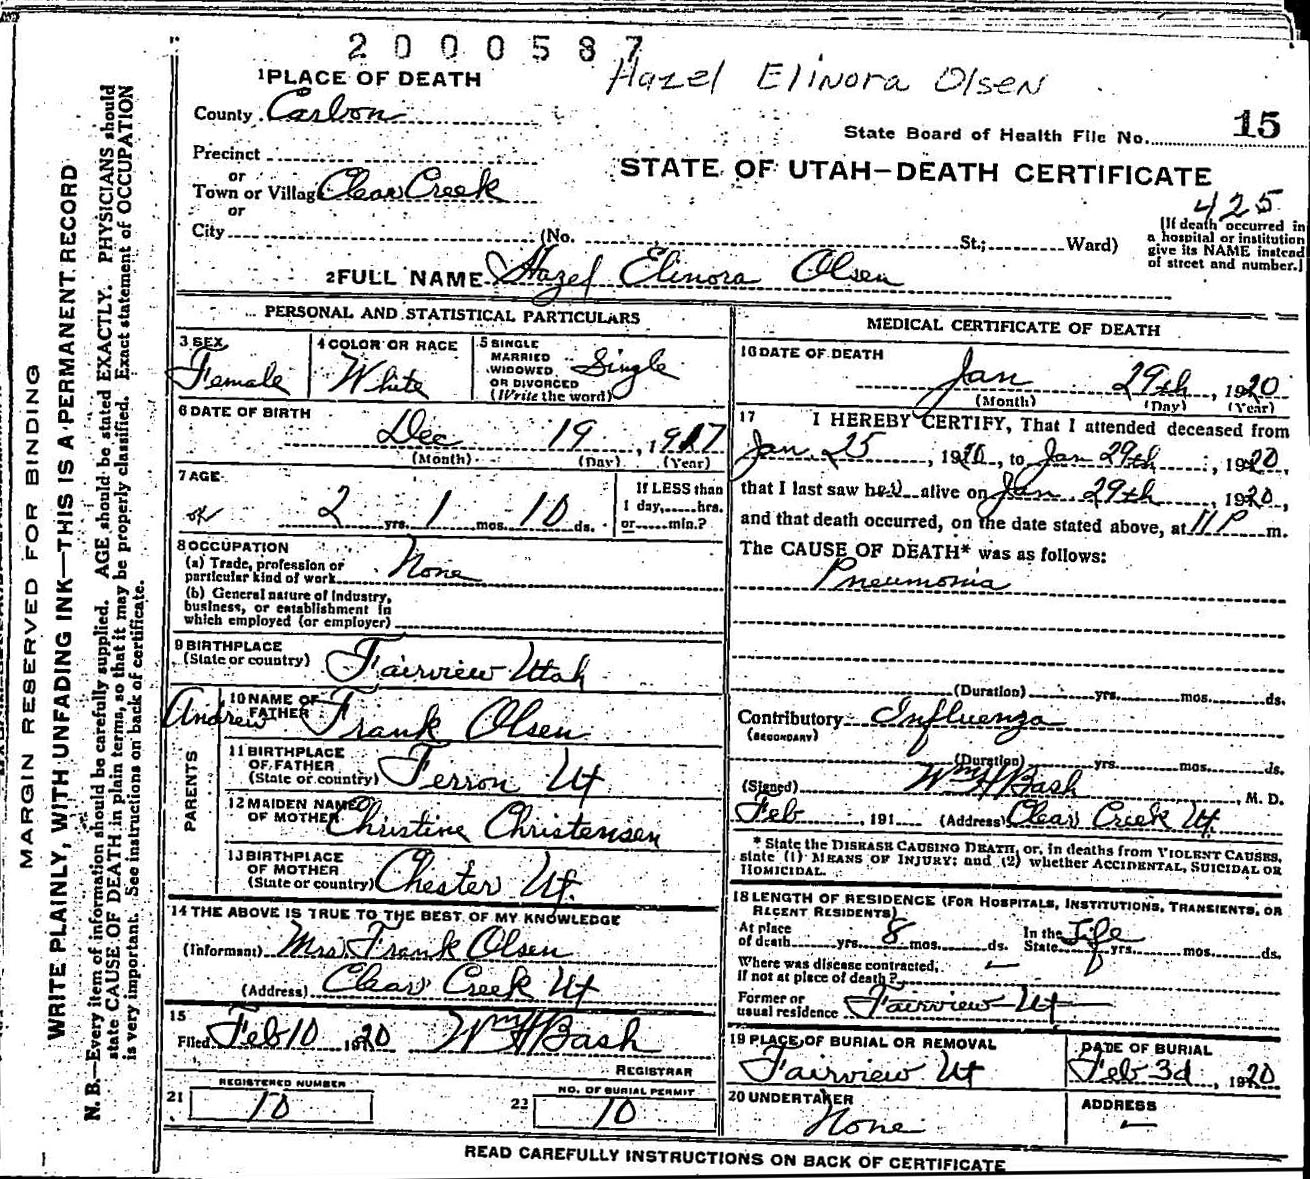 2000587
Hazel Elinora Olsen
1 PLACE OF DEATH
County Carbon
State Board of Health File No. 15
Precinct
or
STATE OF UTAH—DEATH CERTIFICATE
Town or Villag Clear Creek
or
425
City (No. St.; Ward)
[If death occurred in
a hospital or institution
give its NAME instead
of street and number.]
2 FULL NAME Hazel Elinora Olsen
PERSONAL AND STATISTICAL PARTICULARS
3 SEX
Female
4 COLOR OR RACE
White
5 SINGLE
MARRIED
WIDOWED
OR DIVORCED
(Write the word)
Single
6 DATE OF BIRTH
Dec 19, 1917
(Month) (Day) (Year)
7 AGE
or 2 yrs. 1 mos. 10 ds.
If LESS than
1 day, hrs.
or min.?
8 OCCUPATION
(a) Trade, profession or
particular kind of work None
(b) General nature of industry,
business, or establishment in
which employed (or employer)
9 BIRTHPLACE
(State or country) Fairview Utah
PARENTS
10 NAME OF
FATHER Andrew Frank Olsen
11 BIRTHPLACE
OF FATHER
(State or country) Ferron Ut
12 MAIDEN NAME
OF MOTHER Christine Christensen
13 BIRTHPLACE
OF MOTHER
(State or country) Chester Ut.
14 THE ABOVE IS TRUE TO THE BEST OF MY KNOWLEDGE
(Informant) Mrs Frank Olsen
(Address) Clear Creek Ut
15
Filed Feb 10 1920 Wm H Bash
REGISTRAR
21 REGISTERED NUMBER
10
22 NO. OF BURIAL PERMIT
10
MEDICAL CERTIFICATE OF DEATH
16 DATE OF DEATH
Jan 29th, 1920
(Month) (Day) (Year)
17 I HEREBY CERTIFY, That I attended deceased from
Jan 25, 1920, to Jan 29th, 1920,
that I last saw her alive on Jan 29th, 1920,
and that death occurred, on the date stated above, at 11 P m.
The CAUSE OF DEATH* was as follows:
Pneumonia
(Duration) yrs. mos. ds.
Contributory Influenza
(SECONDARY)
(Duration) yrs. mos. ds.
(Signed) Wm H Bash, M. D.
Feb, 191 (Address) Clear Creek Ut.
* State the DISEASE CAUSING DEATH, or, in deaths from VIOLENT CAUSES,
state (1) MEANS OF INJURY; and (2) whether ACCIDENTAL, SUICIDAL OR
HOMICIDAL.
18 LENGTH OF RESIDENCE (FOR HOSPITALS, INSTITUTIONS, TRANSIENTS, OR
RECENT RESIDENTS)
At place
of death yrs. 8 mos. ds.
In the
State Life yrs. mos. ds.
Where was disease contracted,
If not at place of death? —
Former or
usual residence Fairview Ut
19 PLACE OF BURIAL OR REMOVAL
Fairview Ut
DATE OF BURIAL
Feb 3d, 1920
20 UNDERTAKER
None
ADDRESS
—
READ CAREFULLY INSTRUCTIONS ON BACK OF CERTIFICATE
MARGIN RESERVED FOR BINDING
WRITE PLAINLY, WITH UNFADING INK—THIS IS A PERMANENT RECORD
N. B.—Every item of information should be carefully supplied. AGE should be stated EXACTLY. PHYSICIANS should
state CAUSE OF DEATH in plain terms, so that it may be properly classified. Exact statement of OCCUPATION
is very important. See instructions on back of certificate.